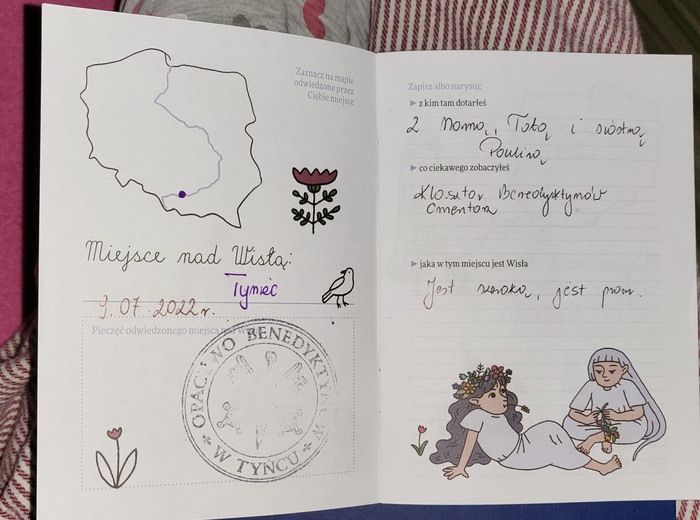 Zaznacz na mapie
odwiedzone przez
Ciebie miejsce
Miejsce nad Wisłą:
Tyniec
9.07.2022r.
Pieczęć odwiedzonego miejsca nad
OPACTWO BENEDYKTYNÓW
W TYŃCU
Zapisz albo narysuj:
z kim tam dotarłeś
Z Mamą, Tatą i siostrą
Pauliną
co ciekawego zobaczyłeś
Klasztor Benedyktynów
Cmentarz
jaka w tym miejscu jest Wisła
Jest szeroka, jest prom.